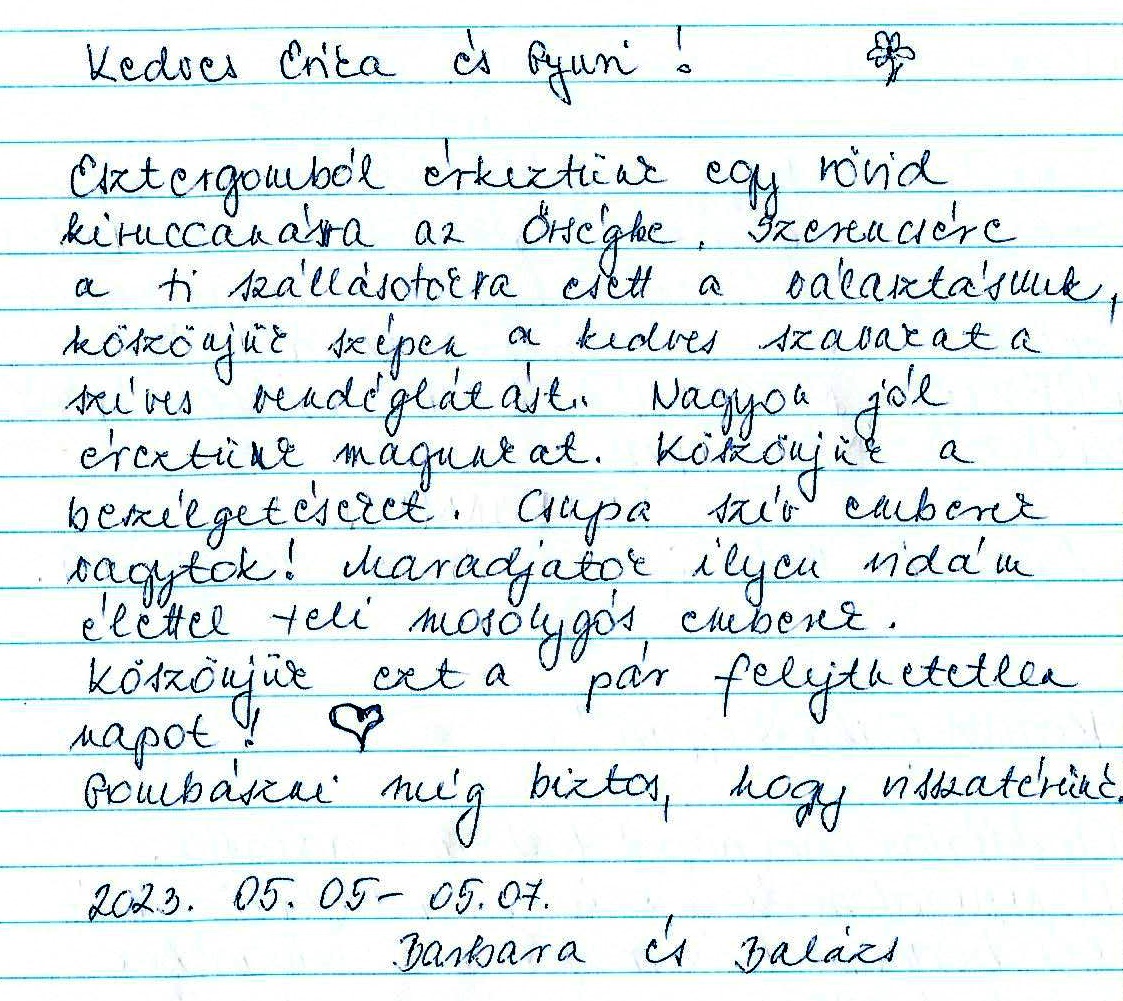 Kedves Erika és Gyuri!
Esztergomból érkeztünk egy rövid
kiruccanásra az Őrségbe. Szerencsére
a ti szállásotokra esett a választásunk,
köszönjük szépen a kedves szavakat a
szíves vendéglátást. Nagyon jól
éreztünk magunkat. Köszönjük a
beszélgetéseket. Csupa szív emberek
vagytok! Maradjatok ilyen vidám
élettel teli mosolygós emberek.
Köszönjük ezt a pár felejthetetlen
napot!
Gombászni még biztos, hogy visszatérünk.
2023. 05. 05- 05.07.
Barbara és Balázs